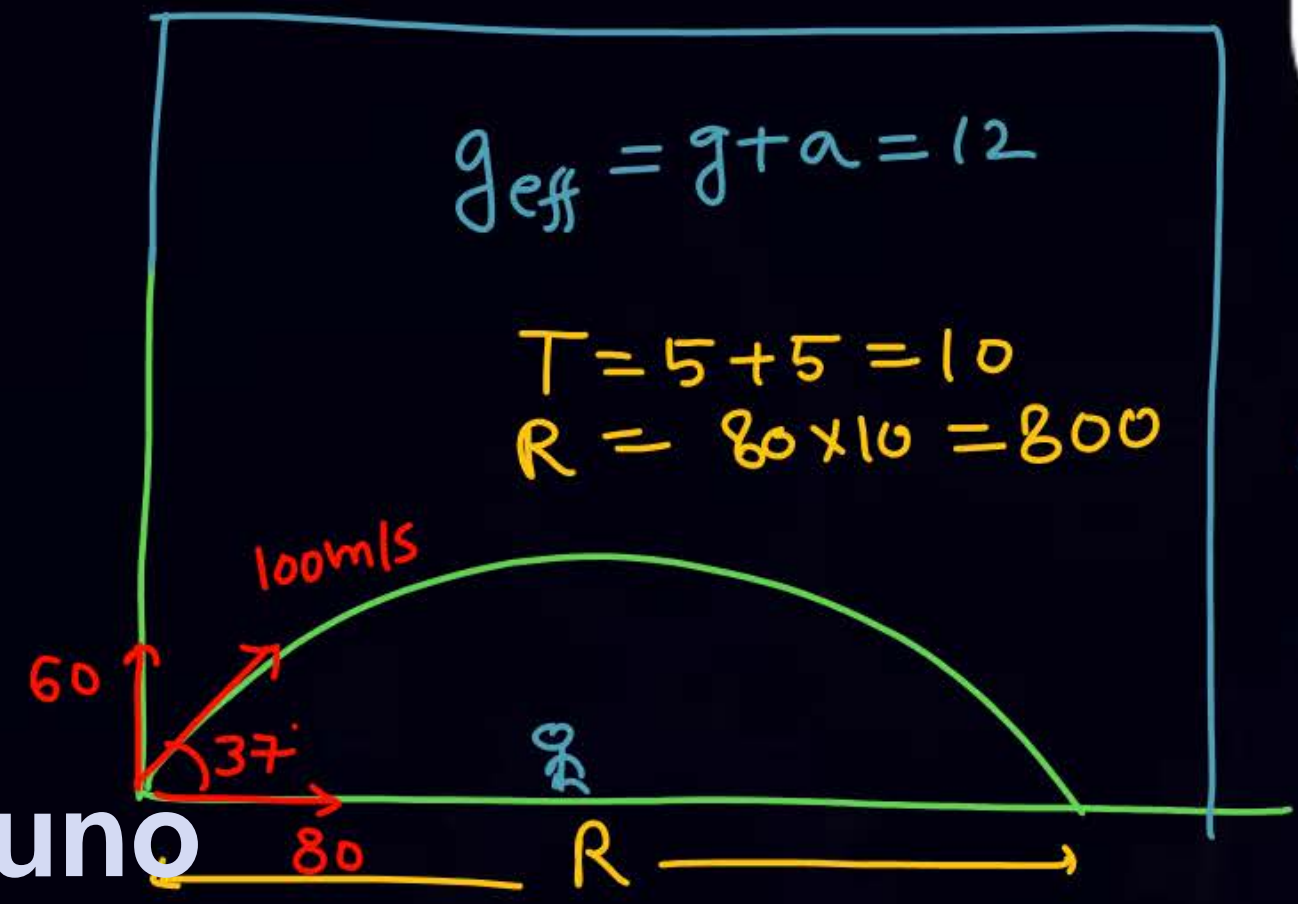 g_eff = g+a = 12
T = 5+5 = 10
R = 80×10 = 800
100m/s
60
37°
80
R
uno